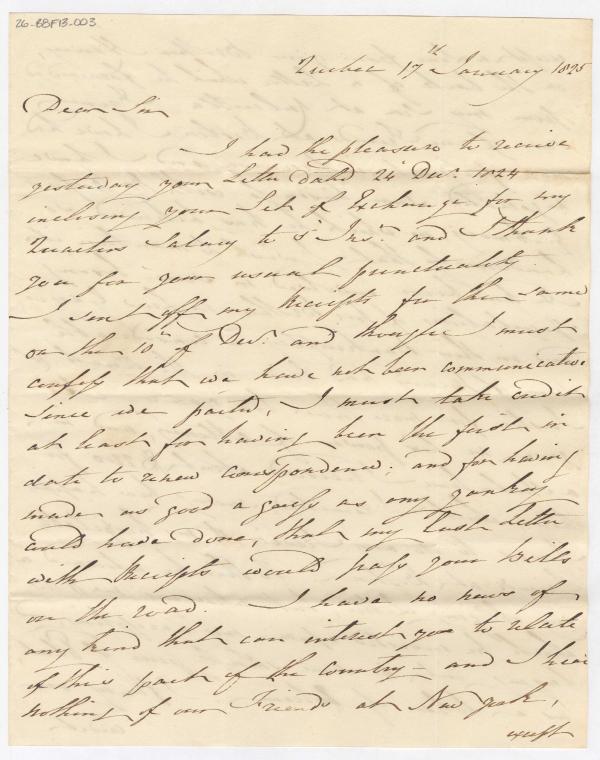 26-BBF13-003
Quebec 17th January 1825
Dear Sir
I had the pleasure to receive
yesterday your Letter dated 24 Decr. 1824
inclosing your Set of Exchange for my
Quarters Salary to 5 Inst. and I thank
you for your usual punctuality.
I sent off my Receipts for the same
on the 10th of Decr. and though I must
confess that we have not been communicative
since we parted, I must take credit
at least for having been the first in
date to renew correspondence; and for having
made as good a guess as any yankey
could have done, that my last Letter
with Receipts would pass your Bills
on the road. I have no news of
any kind that can interest you to relate
of this part of the Country – and I hear
nothing of our Friends at New york,
except